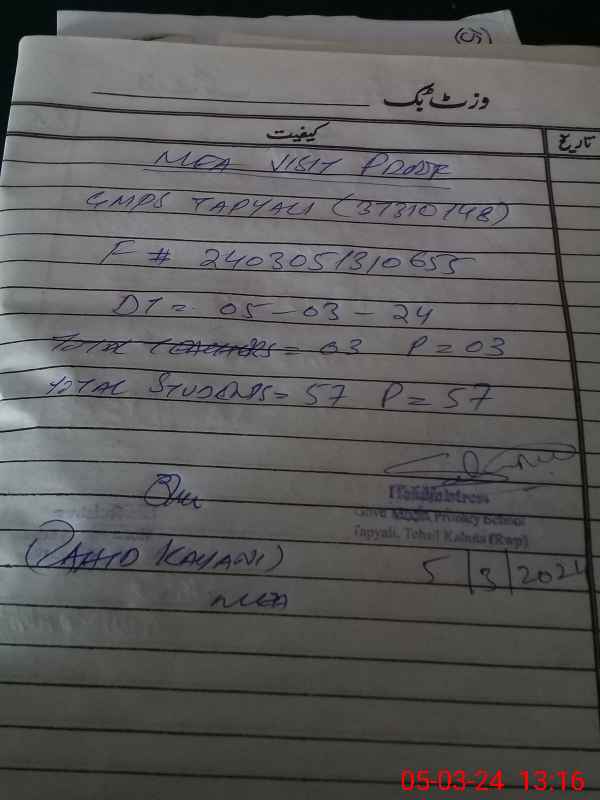 وزٹ بک
کیفیت
تاریخ
MEA VISIT PROOF
GMPS TAPYALI (37310148)
F # 2403051310655
DT = 05-03-24
TOTAL TEACHERS = 03 P = 03
TOTAL STUDENTS = 57 P = 57
Headmistress
Govt Model Primary School
Tapyali, Tehsil Kahuta (Rwp)
KAYANI)
5/3/2024
MEA
05-03-24 13:16